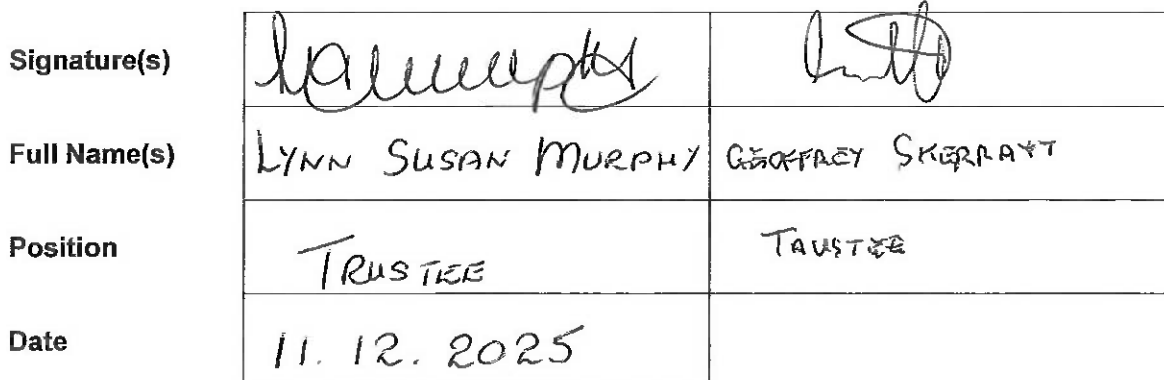 Signature(s)
Full Name(s) LYNN SUSAN MURPHY GEOFFREY SKERRATT
Position TRUSTEE TRUSTEE
Date 11.12.2025